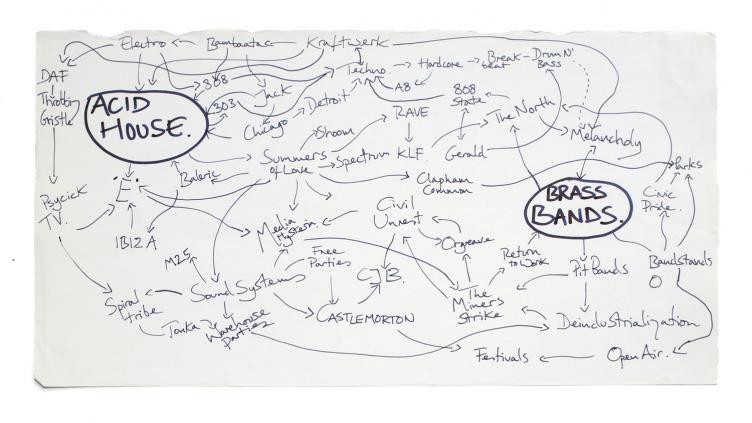 Electro
Bambaataa
Kraftwerk
DAF
808
Techno.
Hardcore
Break-
beat
Drum N'
Bass
Throbbing
Gristle
ACID
HOUSE.
303
Jack
Chicago
Detroit
A8
808
State
RAVE
The North
Melancholy
Shoom
Summers
of Love
Spectrum
KLF.
Gerald
Parks
Clapham
Common
Baleric
'E'.
Psycick
TV.
IBIZA
Media
Hysteria.
Civil
Unrest
BRASS
BANDS.
Civic
Pride.
Orgreave
Free
Parties
Return
to Work
M25
CJB.
Pit Bands
Bandstands
Sound Systems
Spiral
tribe
The
Miners
Strike
Tonka
Warehouse
Parties
CASTLEMORTON
Deindustrialization
Festivals
Open Air.